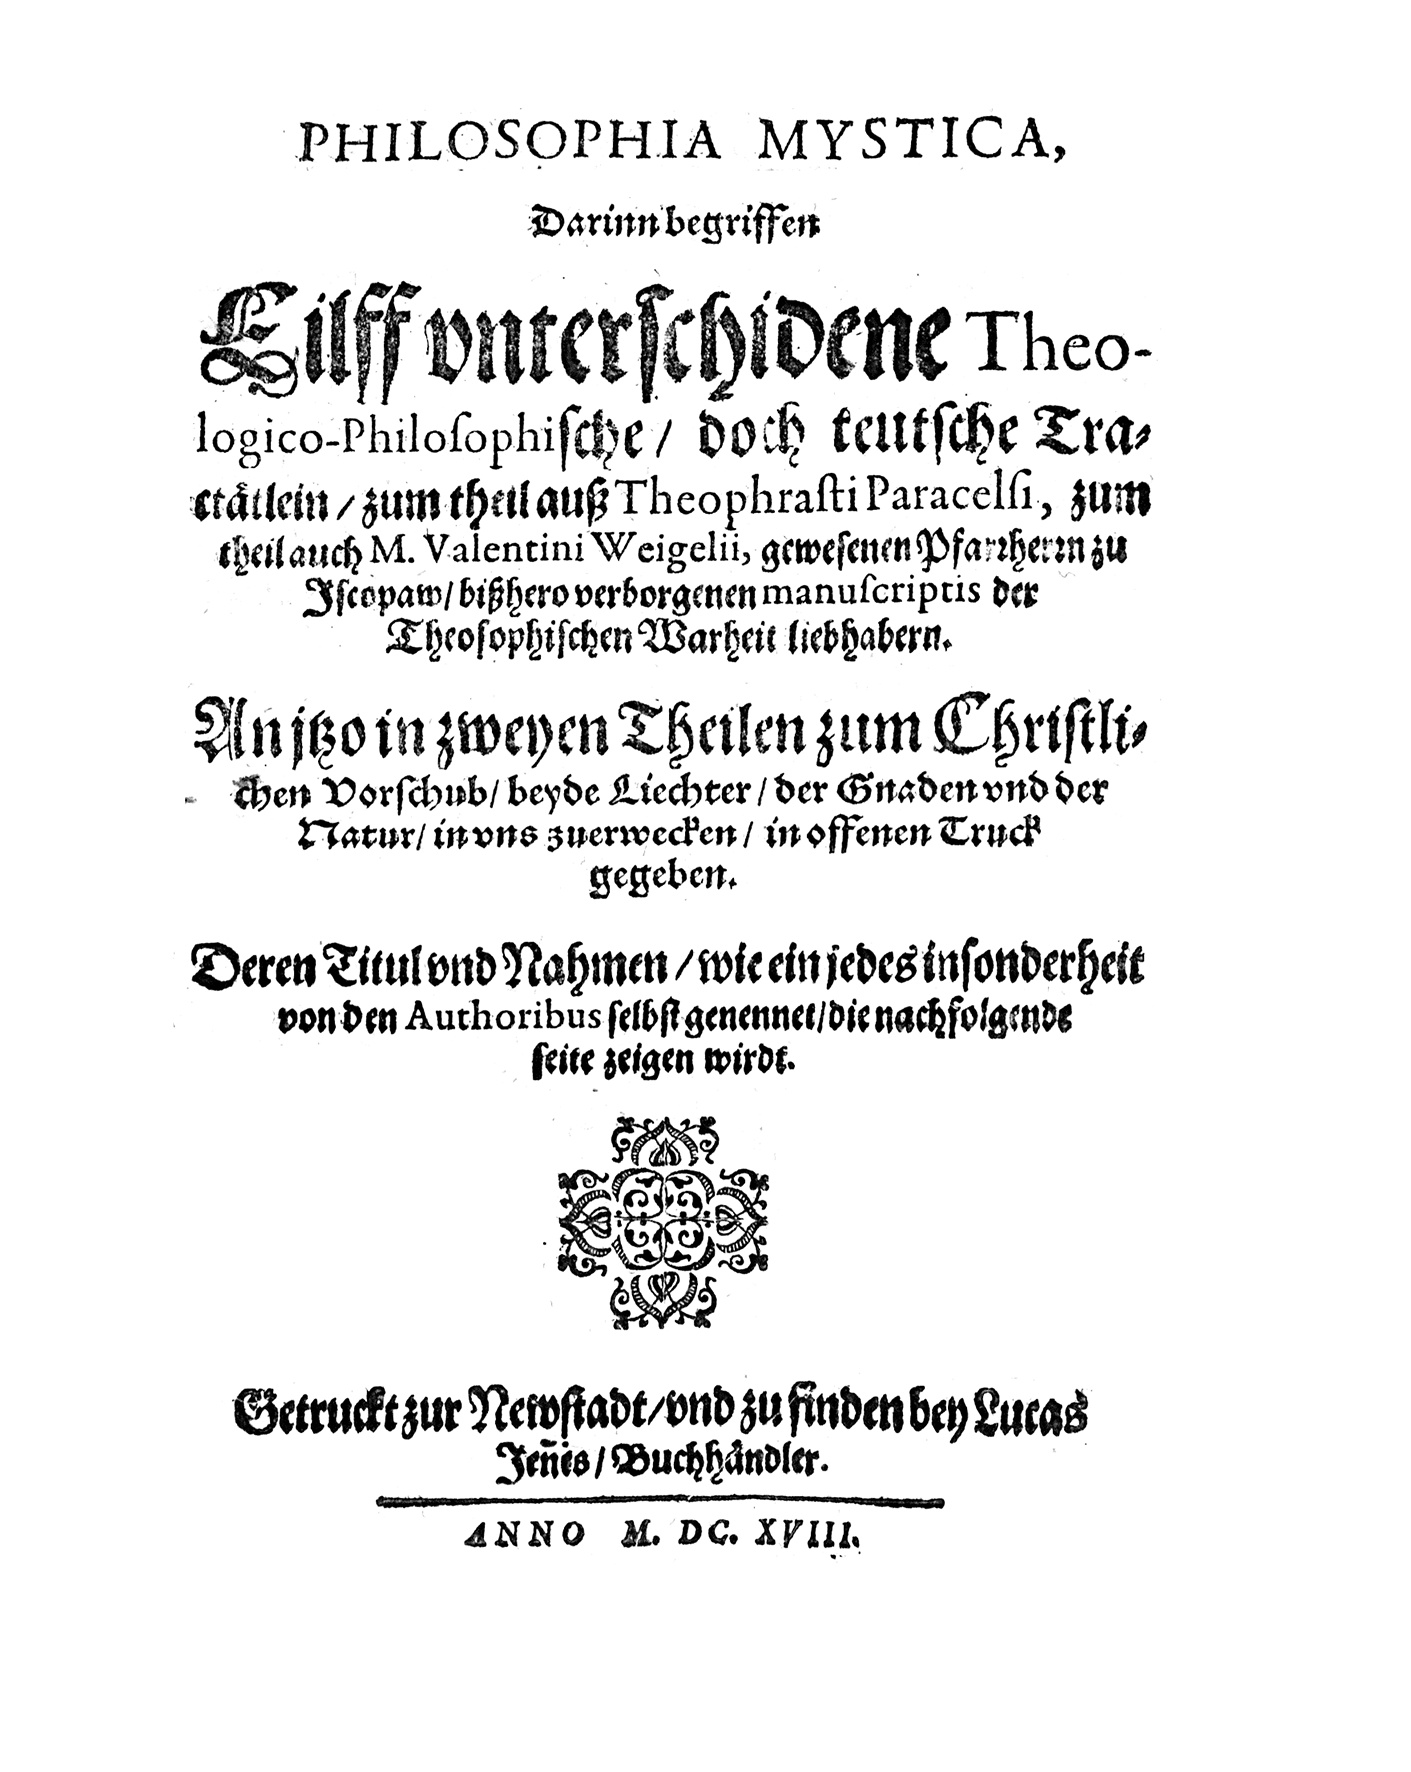 PHILOSOPHIA MYSTICA,
Darinn begriffen
Eilff vnterſchidene Theo-
logico-Philoſophiſche / doch teutſche Tra-
ctaͤtlein / zum theil auß Theophraſti Paracelſi, zum
theil auch M. Valentini Weigelii, geweſenen Pfarꝛherꝛn zu
Iſcopaw / bißhero verborgenen manuſcriptis der
Theoſophiſchen Warheit liebhabern.
An jtzo in zweyen Theilen zum Chriſtli-
chen Vorſchub / beyde Liechter / der Gnaden vnd der
Natur / in vns zuerwecken / in offenen Truck
gegeben.
Deren Titul vnd Nahmen / wie ein jedes inſonderheit
von den Authoribus ſelbſt genennet / die nachfolgende
ſeite zeigen wirdt.
Getruckt zur Newſtadt / vnd zu finden bey Lucas
Jen̄es / Buchhaͤndler.
ANNO M. DC. XVIII.